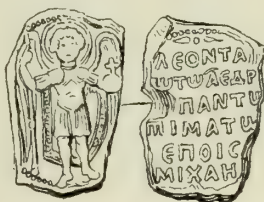 ΛΕΟΝΤΑ
ΩΤΩΛΕΔΡ
ΠΑΝΤΥ
ΠΙΜΑΤΩ
ΕΠΟΙϹ
ΜΙΧΑΗ